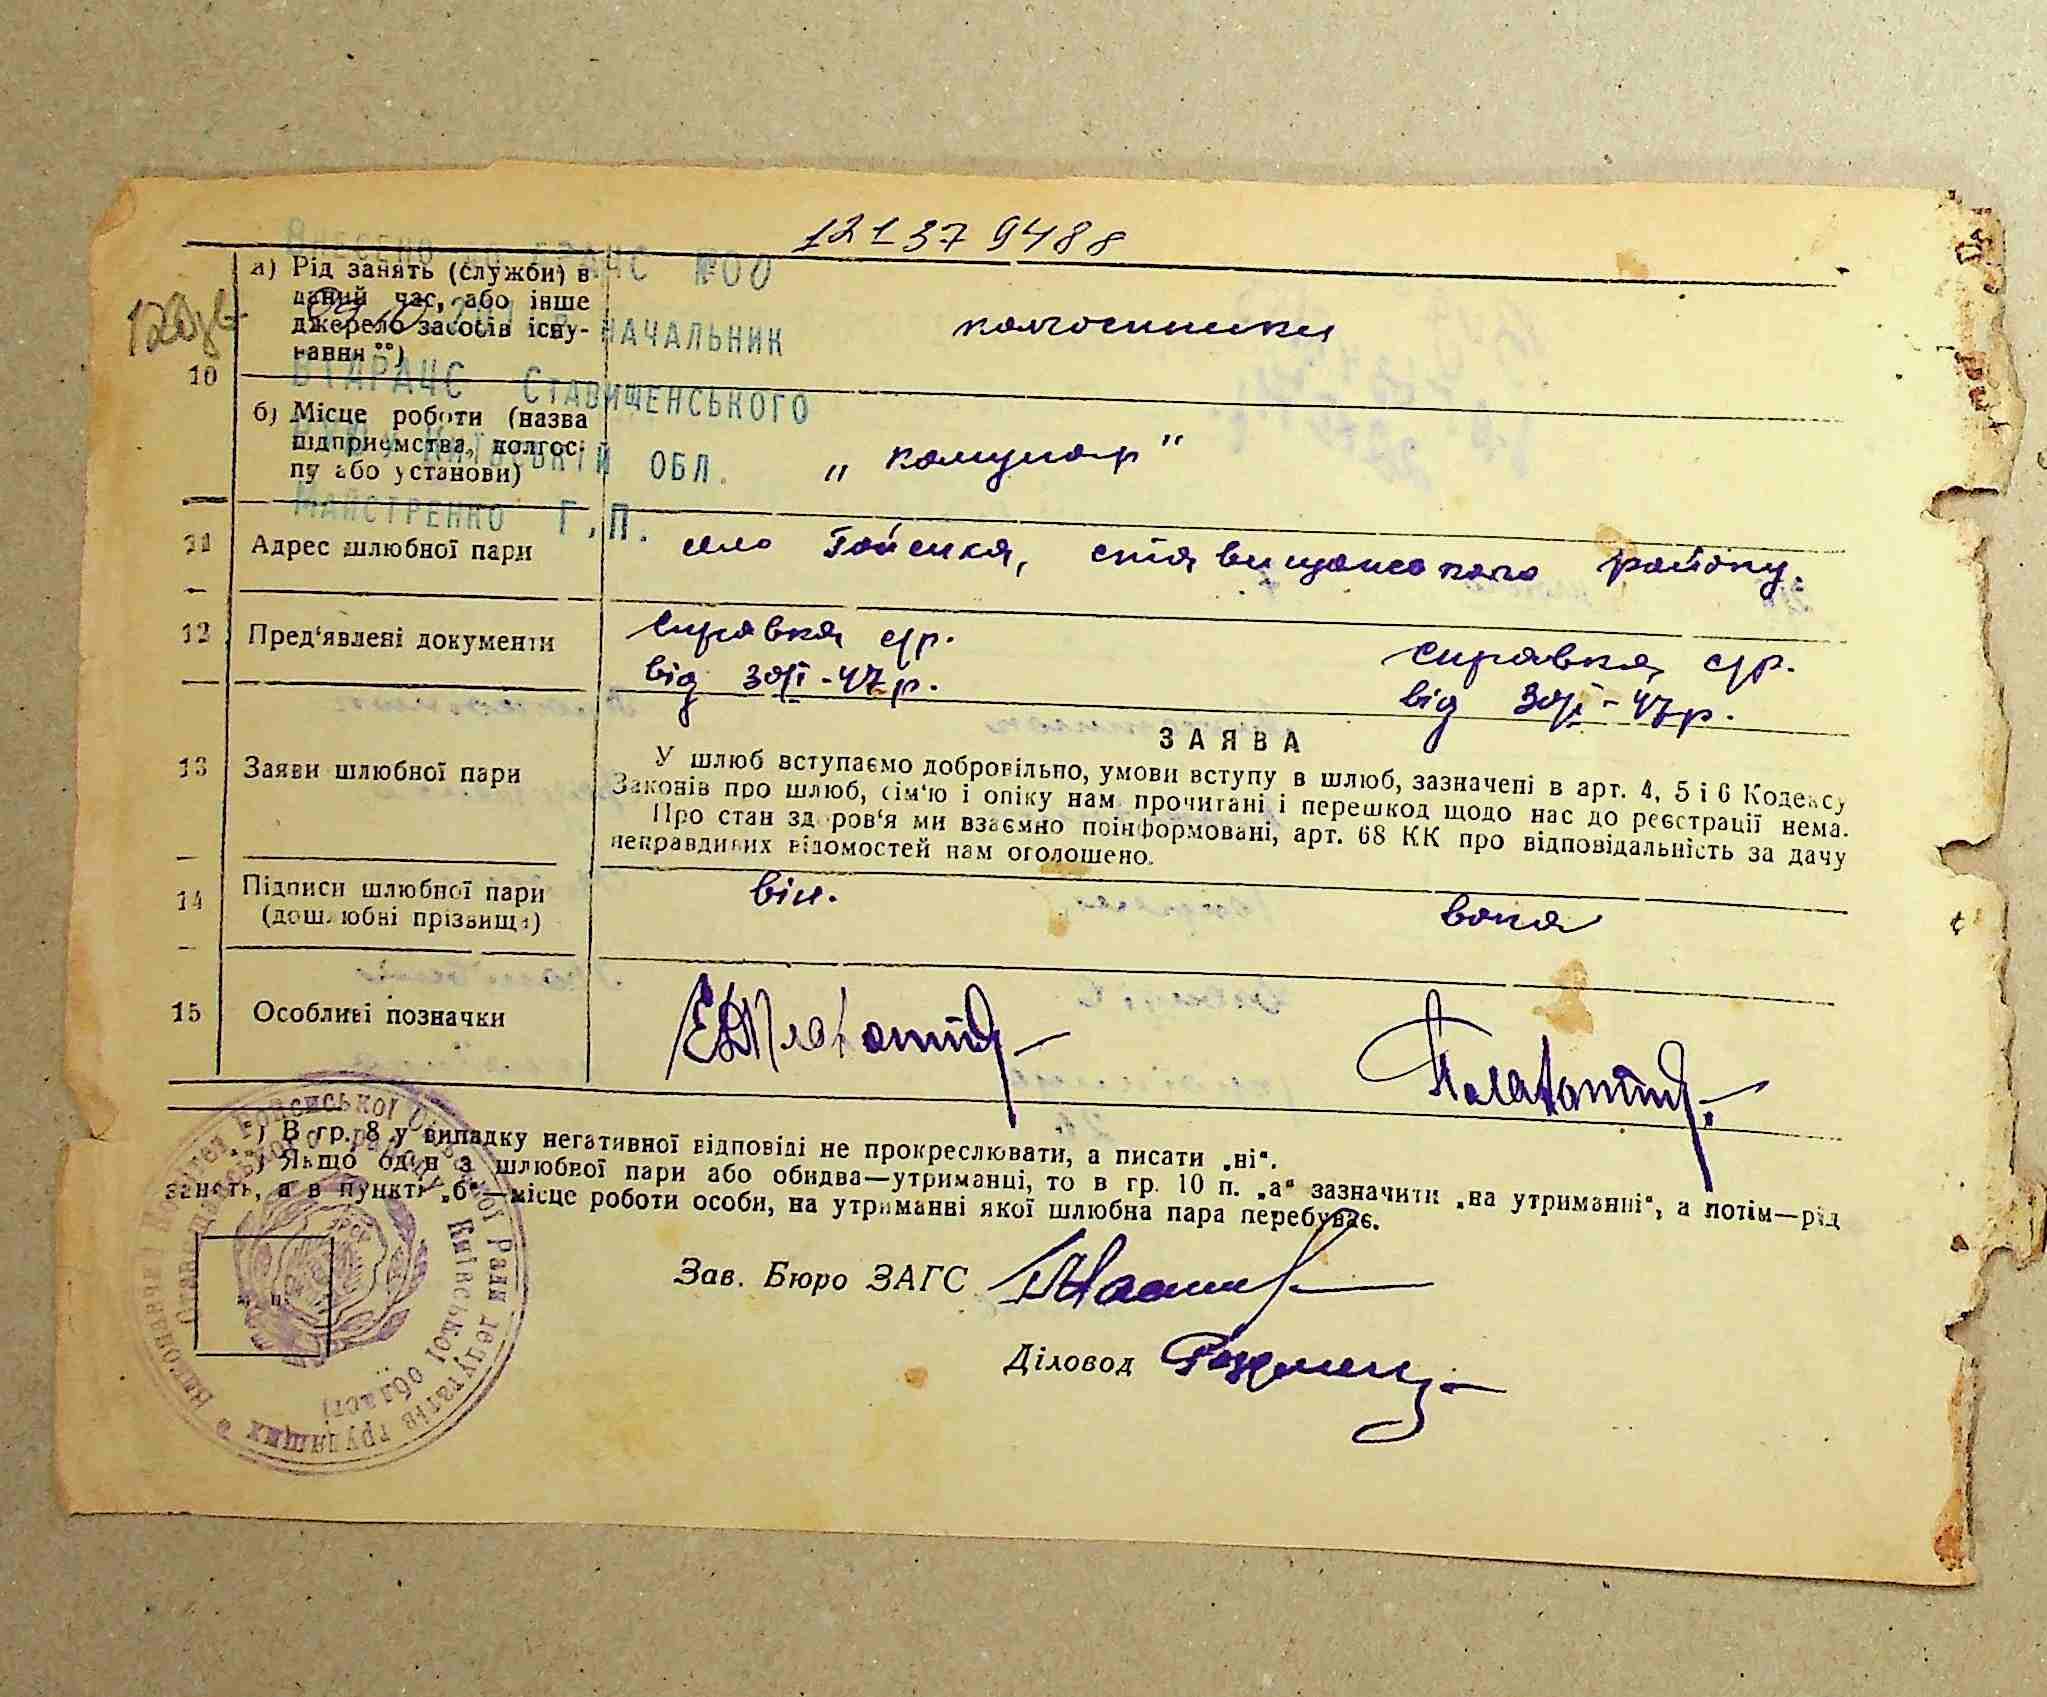 121379488
Внесено до ДРАЧС №00
НАЧАЛЬНИК
ВДАРАЧС Ставищенського
Київській обл.
Майстренко Г.П.
10
а) Рід занять (служби) в
даний час, або інше
джерело засобів існу-
вання **)
колгоспники
б) Місце роботи (назва
підприємства, колгос-
пу або установи)
„Комунар"
11 Адрес шлюбної пари
село Гейсиха, Ставищанського району.
12 Пред'явлені документи
справка с/р.
від 30/I-47р.
справка с/р.
від 30/I-47р.
13 Заяви шлюбної пари
ЗАЯВА
У шлюб вступаємо добровільно, умови вступу в шлюб, зазначені в арт. 4, 5 і 6 Кодексу
Законів про шлюб, сім'ю і опіку нам прочитані і перешкод щодо нас до реєстрації нема.
Про стан здоров'я ми взаємно поінформовані, арт. 68 КК про відповідальність за дачу
неправдивих відомостей нам оголошено.
14 Підписи шлюбної пари
(дошлюбні прізвища)
він.
вона
15 Особливі позначки
*) В гр. 8 у випадку негативної відповіді не прокреслювати, а писати „ні“.
**) Якщо один з шлюбної пари або обидва—утриманці, то в гр. 10 п. „а“ зазначити „на утриманні“, а потім—рід
занять, а в пункті „б“—місце роботи особи, на утриманні якої шлюбна пара перебуває.
Зав. Бюро ЗАГС
Діловод
Виконавчий Комітет Ради депутатів трудящих
району Київської області